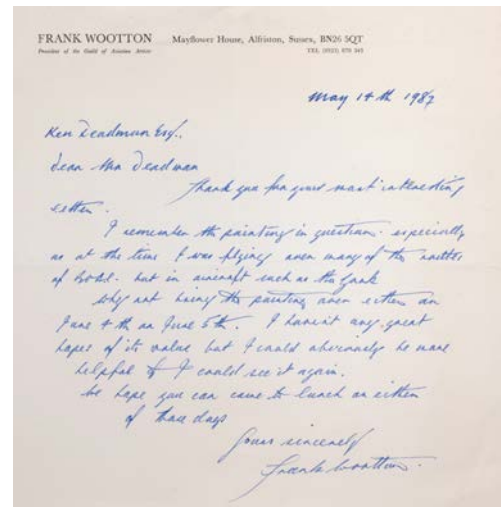 FRANK WOOTTON Mayflower House, Alfriston, Sussex, BN26 5QT
President of the Guild of Aviation Artists TEL (0323) 870 343
May 14th 1987
Ken Deadman Esq.,
Dear Mr Deadman
Thank you for yours most interesting
letter.
I remember the painting in question. especially
as at the time I was flying over many of the
of but in aircraft such as the
Why not bring the painting over either on
June 4th or June 5th. I haven't any great
hopes of its value but I could obviously be more
helpful if I could see it again.
We hope you can come to lunch on either
of those days
Yours sincerely
Frank Wootton.